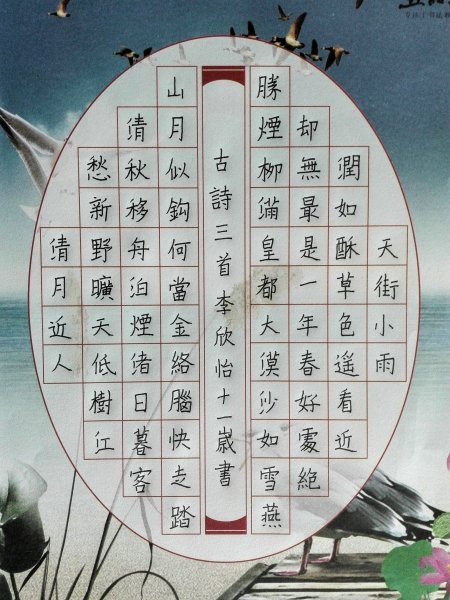 天街小雨
潤如酥草色遙看近
却無最是一年春好處絕
勝煙柳滿皇都大漠沙如雪燕
古詩三首 李欣怡十一歲書
山月似鈎何當金絡腦快走踏
清秋移舟泊煙渚日暮客
愁新野曠天低樹江
清月近人